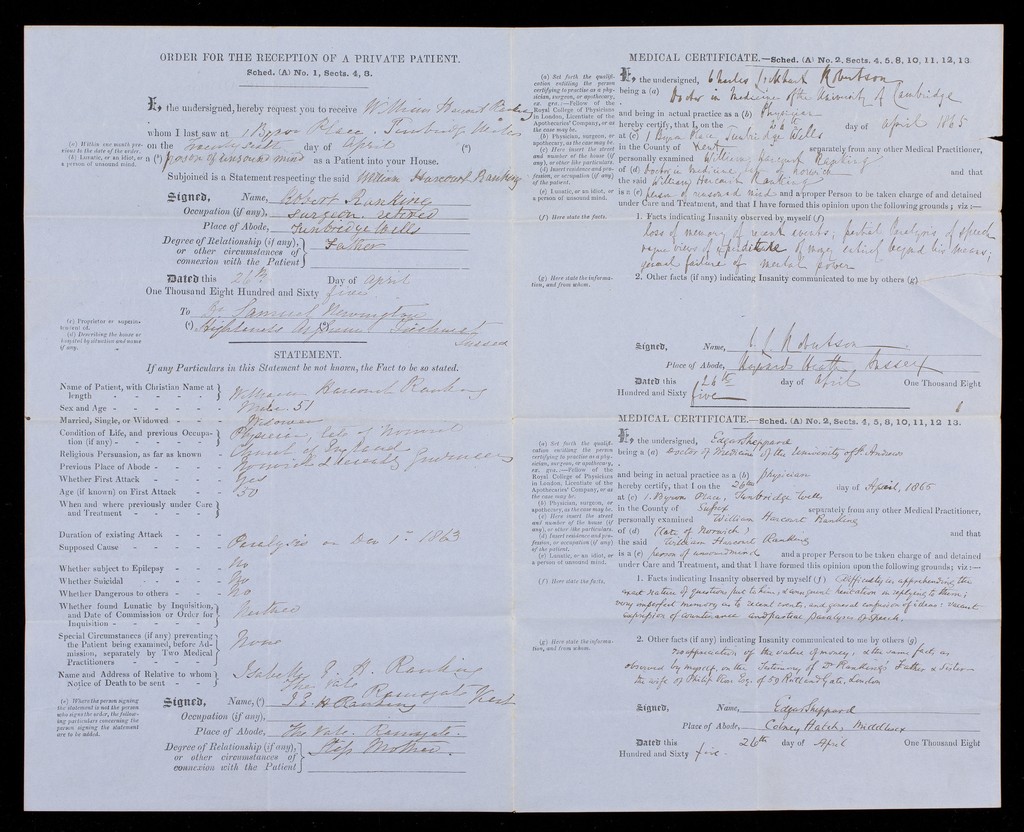 ORDER FOR THE RECEPTION OF A PRIVATE PATIENT.
Sched. (A) No. 1, Sects. 4, 8.
I, the undersigned, hereby request you to receive William Harcourt Ranking
whom I last saw at 1 Byron Place, Tunbridge Wells
on the twenty sixth day of April (a)
a (b) person of unsound mind as a Patient into your House.
(a) Within one month previous to the date of the order.
(b) Lunatic, or an idiot, or a person of unsound mind.
Subjoined is a Statement respecting the said William Harcourt Ranking
Signed, Name, Robert Ranking
Occupation (if any), Surgeon retired
Place of Abode, Tunbridge Wells
Degree of Relationship (if any), or other circumstances of connexion with the Patient Father
Dated this 26th Day of April
One Thousand Eight Hundred and Sixty five
To Samuel Newington
(c) Highlands Asylum (d) Ticehurst
Sussex
(c) Proprietor or superintendent of.
(d) Describing the house or hospital by situation and name if any.
STATEMENT.
If any Particulars in this Statement be not known, the Fact to be so stated.
Name of Patient, with Christian Name at length William Harcourt Ranking
Sex and Age Male. 51
Married, Single, or Widowed Widower
Condition of Life, and previous Occupation (if any) Physician, late of Norwich
Religious Persuasion, as far as known Church of England
Previous Place of Abode Norwich & Guernsey
Whether First Attack Yes
Age (if known) on First Attack 50
When and where previously under Care and Treatment
Duration of existing Attack
Supposed Cause Paralysis on Dec 1st 1863
Whether subject to Epilepsy No
Whether Suicidal No
Whether Dangerous to others No
Whether found Lunatic by Inquisition, and Date of Commission or Order for Inquisition Neither
Special Circumstances (if any) preventing the Patient being examined, before Admission, separately by Two Medical Practitioners None
Name and Address of Relative to whom Notice of Death to be sent Isabella E. H. Ranking
The Vale Ramsgate Kent
Signed, Name, (e) I. E. H Ranking
Occupation (if any),
Place of Abode, The Vale. Ramsgate.
Degree of Relationship (if any), or other circumstances of connexion with the Patient Step Mother.
(e) Where the person signing the statement is not the person who signs the order, the following particulars concerning the person signing the statement are to be added.
MEDICAL CERTIFICATE.—Sched. (A) No. 2, Sects. 4, 5, 8, 10, 11, 12, 13.
I, the undersigned, Charles Lockhart Robertson
being a (a) Doctor in Medicine of the University of Cambridge
and being in actual practice as a (b) Physician
hereby certify, that I, on the 26th day of April 1865
at (c) 1 Byron Place, Tunbridge Wells
in the County of Kent separately from any other Medical Practitioner,
personally examined William Harcourt Ranking
of (d) Doctor in medicine, of Norwich and that
the said William Harcourt Ranking
is a (e) person of unsound mind and a proper Person to be taken charge of and detained
under Care and Treatment, and that I have formed this opinion upon the following grounds; viz:—
1. Facts indicating Insanity observed by myself (f)
loss of memory of recent events; partial Paralysis of speech
vague views of expenditure of money entirely beyond his means;
general failure of mental power
2. Other facts (if any) indicating Insanity communicated to me by others (g)
(a) Set forth the qualification entitling the person certifying to practise as a physician, surgeon, or apothecary, ex. gra.:—Fellow of the Royal College of Physicians in London, Licentiate of the Apothecaries' Company, or as the case may be.
(b) Physician, surgeon, or apothecary, as the case may be.
(c) Here insert the street and number of the house (if any), or other like particulars.
(d) Insert residence and profession, or occupation (if any) of the patient.
(e) Lunatic, or an idiot, or a person of unsound mind.
(f) Here state the facts.
(g) Here state the information, and from whom.
Signed, Name, C. L. Robertson
Place of Abode, Haywards Heath, Sussex
Dated this 26th day of April One Thousand Eight
Hundred and Sixty five
MEDICAL CERTIFICATE.—Sched. (A) No. 2, Sects. 4, 5, 8, 10, 11, 12, 13.
I, the undersigned, Edgar Sheppard
being a (a) Doctor of Medicine of the University of St. Andrews
and being in actual practice as a (b) physician
hereby certify, that I, on the 26th day of April, 1865
at (c) 1. Byron Place, Tunbridge Wells
in the County of Sussex separately from any other Medical Practitioner,
personally examined William Harcourt Ranking
of (d) (late of Norwich) and that
the said William Harcourt Ranking
is a (e) person of unsound mind and a proper Person to be taken charge of and detained
under Care and Treatment, and that I have formed this opinion upon the following grounds; viz:—
1. Facts indicating Insanity observed by myself (f) Difficulty in apprehending the
exact nature of questions put to him, & consequent hesitation in replying to them;
very imperfect memory as to recent events, and general confusion of ideas: vacant
expression of countenance and partial paralysis of speech.
2. Other facts (if any) indicating Insanity communicated to me by others (g)
No appreciation of the value of money, & the same facts as
observed by myself, on the testimony of Dr Ranking's Father, & Sister
the wife of Philip Rose Esq. of 59 Rutland Gate, London
(a) Set forth the qualification entitling the person certifying to practise as a physician, surgeon, or apothecary, ex. gra.:—Fellow of the Royal College of Physicians in London, Licentiate of the Apothecaries' Company, or as the case may be.
(b) Physician, surgeon, or apothecary, as the case may be.
(c) Here insert the street and number of the house (if any), or other like particulars.
(d) Insert residence and profession, or occupation (if any) of the patient.
(e) Lunatic, or an idiot, or a person of unsound mind.
(f) Here state the facts.
(g) Here state the information, and from whom.
Signed, Name, Edgar Sheppard
Place of Abode, Colney Hatch, Middlesex
Dated this 26th day of April One Thousand Eight
Hundred and Sixty five.